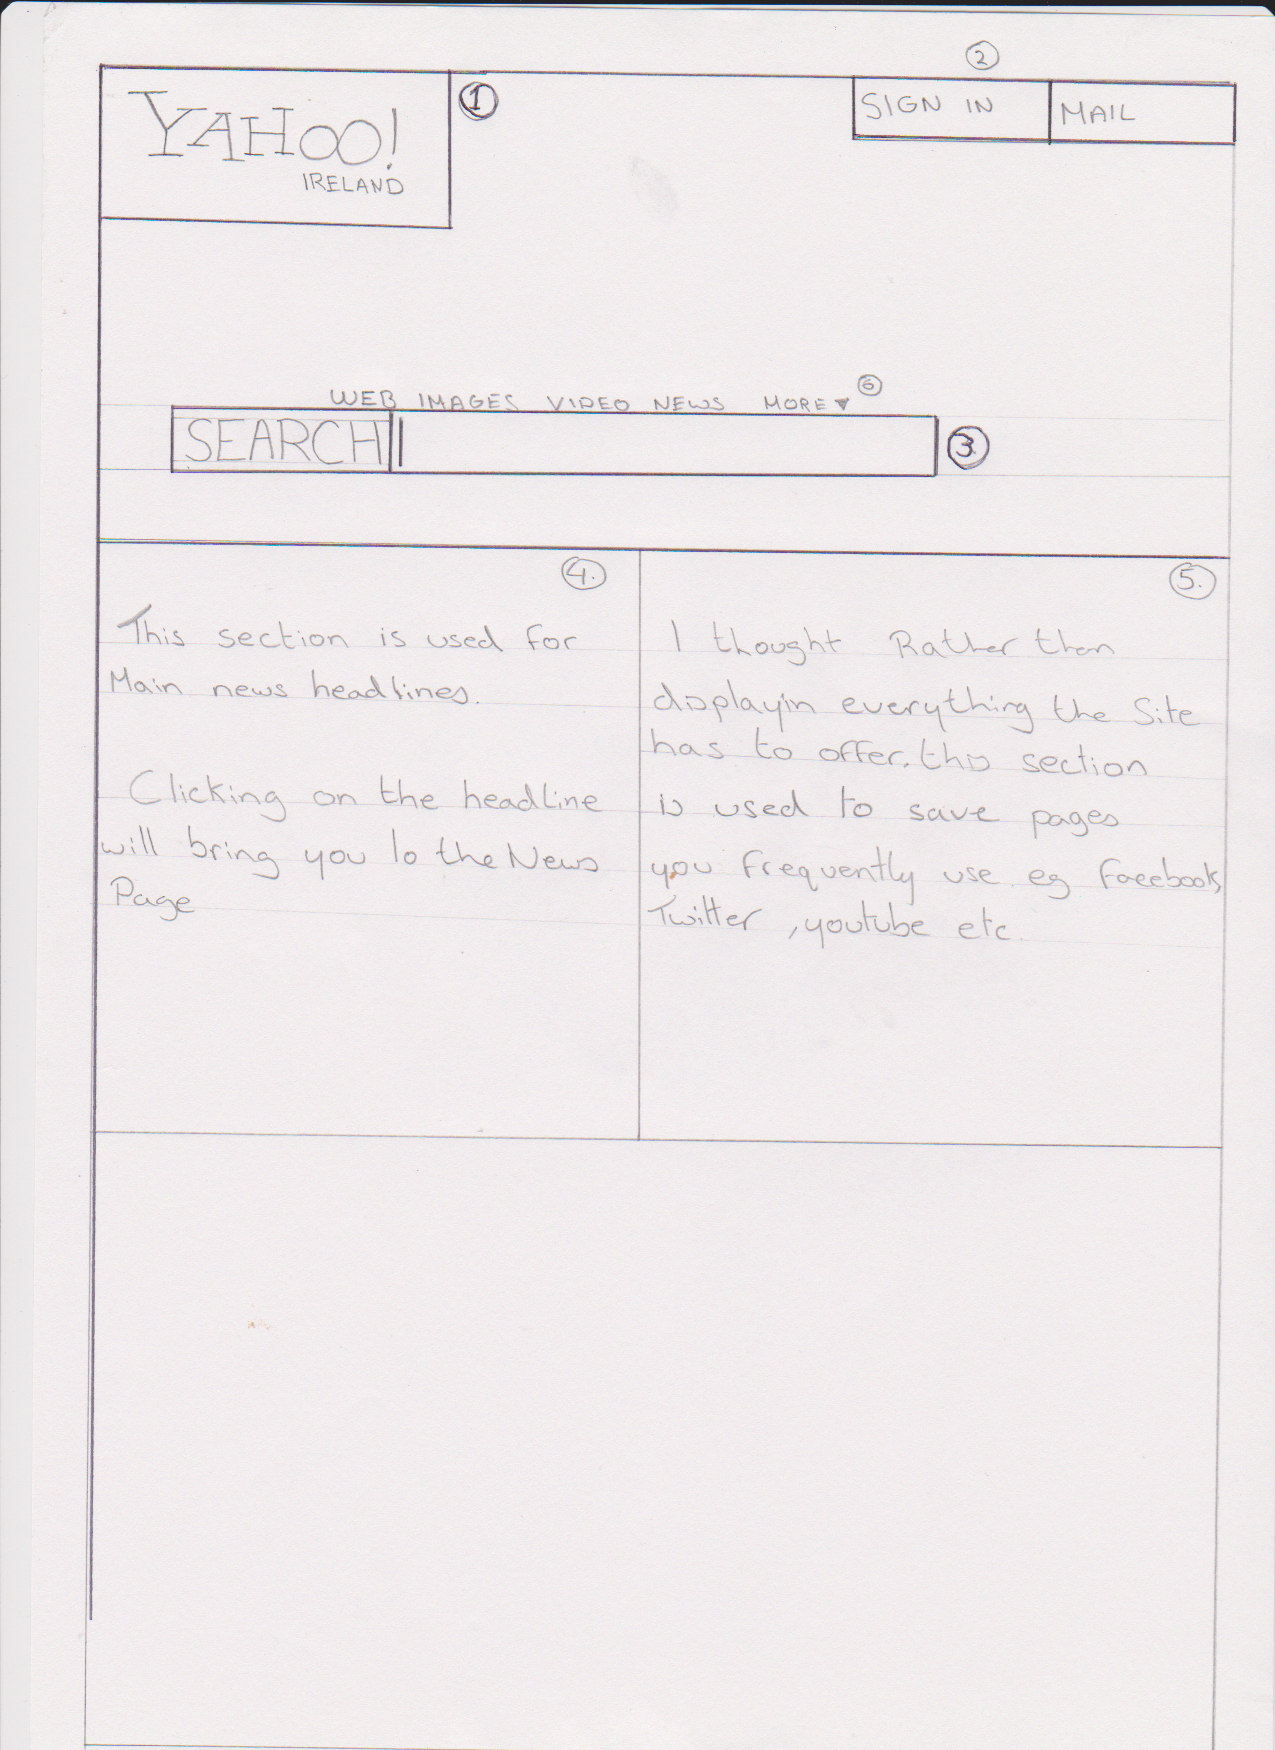 2
YAHOO!
1
SIGN IN MAIL
IRELAND
WEB IMAGES VIDEO NEWS MORE▼ 6
SEARCH 3.
4.
This section is used for
Main news headlines.
Clicking on the headline
will bring you to the News
Page
5.
I thought Rather than
displayin everything the Site
has to offer, this section
is used to save pages
you frequently use eg facebook,
Twitter , youtube etc.